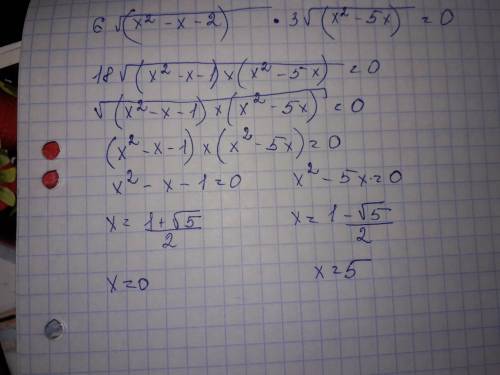 6 √(x² - x - 2) · 3√(x² - 5x) = 0
18√(x² - x - 1) × (x² - 5x) = 0
√(x² - x - 1) × (x² - 5x) = 0
(x² - x - 1) × (x² - 5x) = 0
x² - x - 1 = 0 x² - 5x = 0
x = (1 + √5)/2 x = (1 - √5)/2
x = 0 x = 5